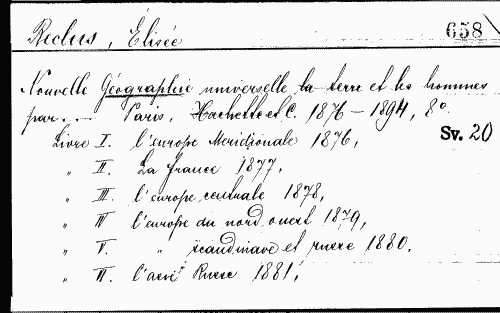 Reclus, Élisée 658
Nouvelle Géographie universelle la terre et les hommes
par... Paris, Hachette et C. 1876 – 1894, 8°
Sv. 20
Livre I. l'europe Meridionale 1876,
" II. La france 1877,
" III. l'europe centrale 1878,
" IV l'europe du nord ouest 1879,
" V. " scandinave et russe 1880.
" VI. l'asie Russe 1881,